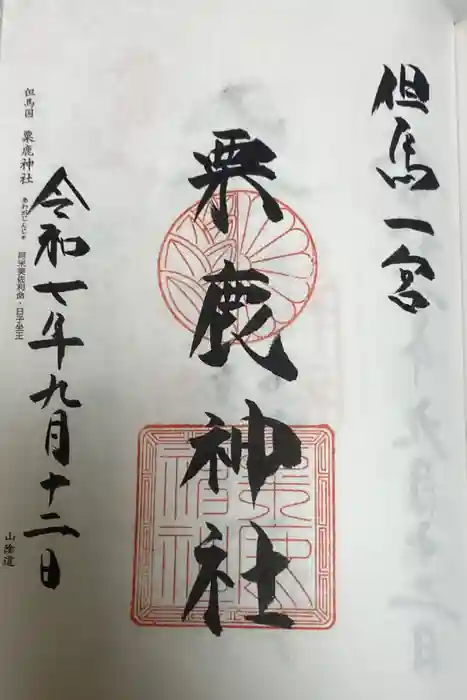 但馬一宮
粟鹿神社
令和七年九月十二日
但馬国 粟鹿神社
あわがじんじゃ
阿米美佐利命・日子坐王
山陰道